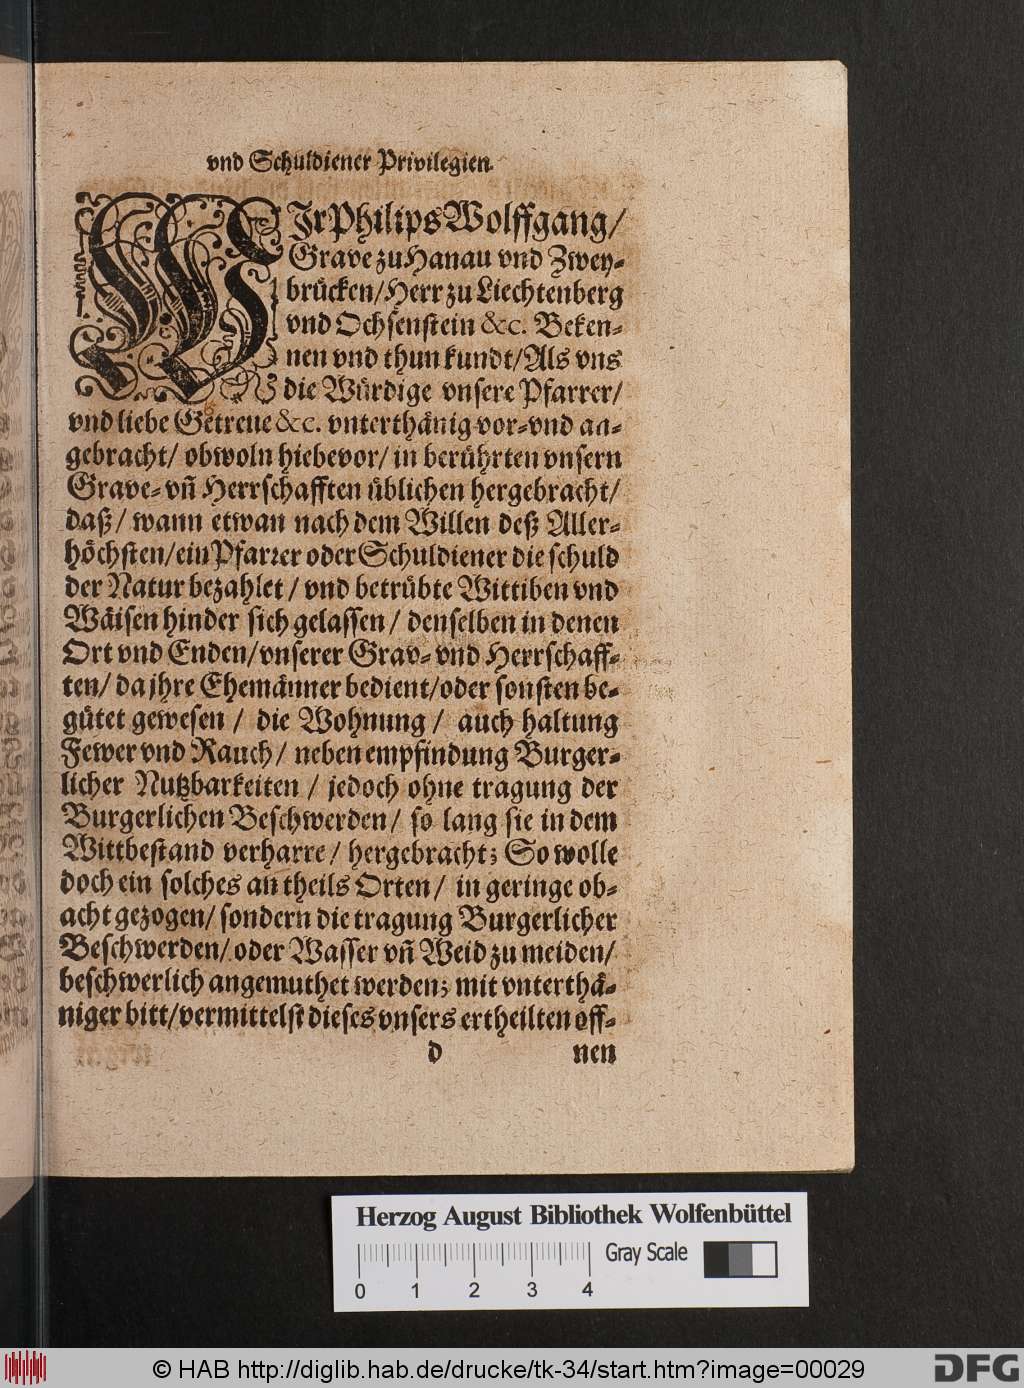 vnd Schuldiener Privilegien.
WIr Philips Wolffgang /
Grave zu Hanau vnd Zwey-
brücken / Herr zu Liechtenberg
vnd Ochsenstein &c. Beken-
nen vnd thun kundt / Als vns
die Würdige vnsere Pfarrer /
vnd liebe Getreue &c. vnterthänig vor-vnd an-
gebracht / obwoln hiebevor / in berührten vnsern
Grave- vñ Herrschafften üblichen hergebracht /
daß / wann etwan nach dem Willen deß Aller-
höchsten / ein Pfarrer oder Schuldiener die schuld
der Natur bezahlet / vnd betrübte Wittiben vnd
Wäisen hinder sich gelassen / denselben in denen
Ort vnd Enden / vnserer Grav- vnd Herrschaff-
ten / da jhre Ehemänner bedient / oder sonsten be-
gütet gewesen / die Wohnung / auch haltung
Fewer vnd Rauch / neben empfindung Burger-
licher Nutzbarkeiten / jedoch ohne tragung der
Burgerlichen Beschwerden / so lang sie in dem
Wittbestand verharre / hergebracht; So wolle
doch ein solches an theils Orten / in geringe ob-
acht gezogen / sondern die tragung Burgerlicher
Beschwerden / oder Wasser vñ Weid zu meiden /
beschwerlich angemuthet werden; mit vnterthä-
niger bitt / vermittelst dieses vnsers ertheilten off-
d nen
Herzog August Bibliothek Wolfenbüttel
Gray Scale
0 1 2 3 4
© HAB http://diglib.hab.de/drucke/tk-34/start.htm?image=00029
DFG